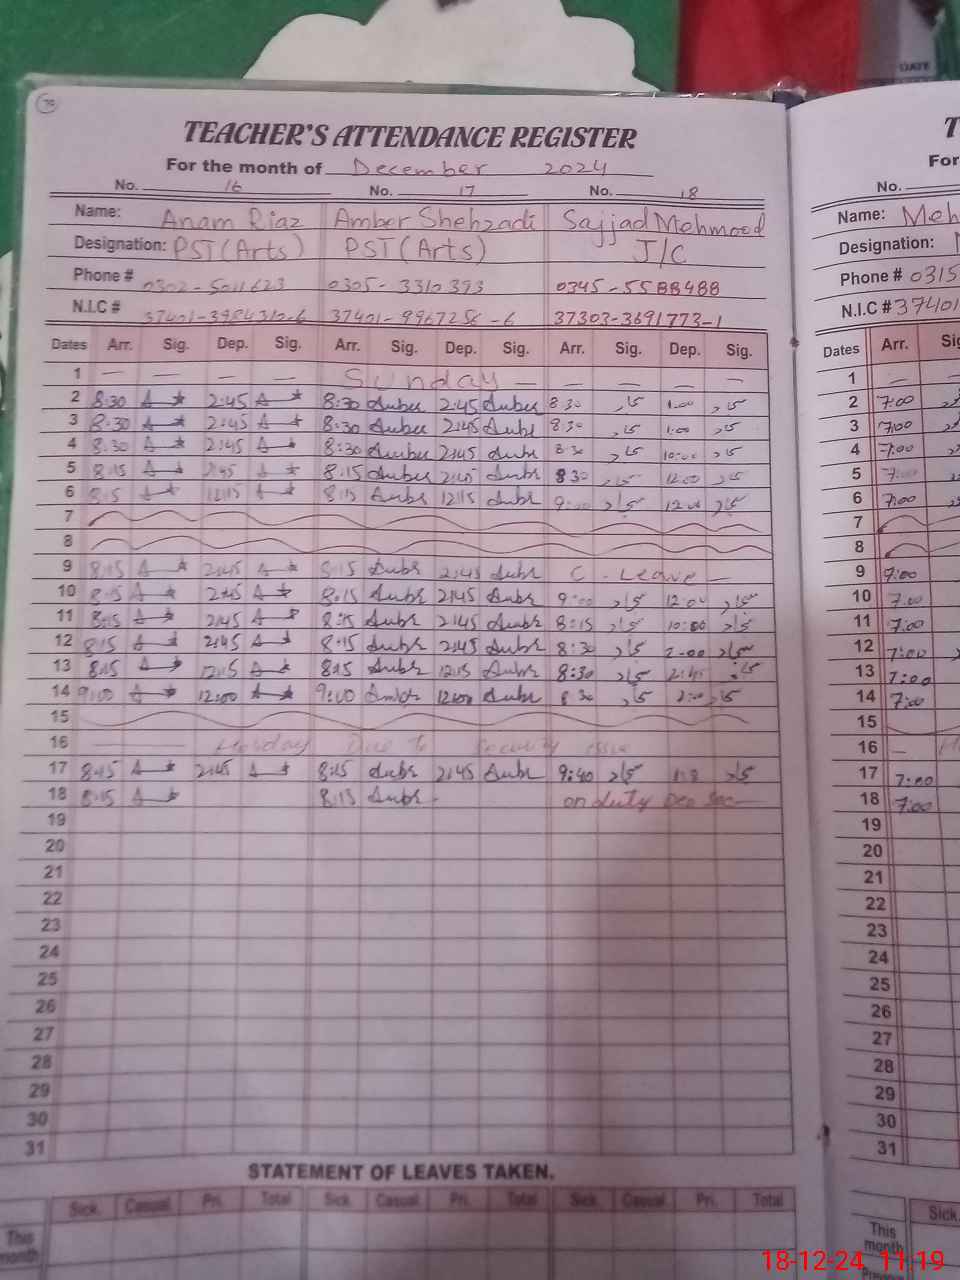 DATE
70
TEACHER'S ATTENDANCE REGISTER
For the month of December 2024
No. 16 No. 17 No. 18
Name: Anam Riaz Amber Shehzadi Sajjad Mehmood
Designation: PST (Arts) PST (Arts) J/C
Phone # 0302-5011623 0305-3310393 0345-5588488
N.I.C # 37401-3984310-6 37401-9967256-6 37303-3691773-1
Dates Arr. Sig. Dep. Sig. Arr. Sig. Dep. Sig. Arr. Sig. Dep. Sig.
1 — — — — Sunday — — — — —
2 8:30 A 2:45 A 8:30 Amber 2:45 Amber 8:30 1:00
3 8:30 A 2:45 A 8:30 Amber 2:45 Ambr 8:30 1:00
4 8:30 A 2:45 A 8:30 Amber 2:45 Ambr 8:30 10:00
5 8:15 A 2:45 A 8:15 Amber 2:45 Ambr 8:30 12:00
6 8:15 A 12:15 A 8:15 Ambr 12:15 Ambr 9:00 12:00
7
8
9 8:15 A 2:45 A 8:15 Ambr 2:45 Ambr C-Leave —
10 8:15 A 2:45 A 8:15 Ambr 2:45 Ambr 9:00 12:00
11 8:15 A 2:45 A 8:15 Ambr 2:45 Ambr 8:15 10:00
12 8:15 A 2:45 A 8:15 Ambr 2:45 Ambr 8:30 2:00
13 8:15 A 12:15 A 8:15 Ambr 12:15 Ambr 8:30 2:45
14 9:00 A 12:00 A 9:00 Ambr 12:00 Ambr 8:30 2:00
15
16 — Holiday Due to Security issue
17 8:45 A 2:45 A 8:15 Ambr 2:45 Ambr 9:40
18 8:15 A 8:15 Ambr on duty
19
20
21
22
23
24
25
26
27
28
29
30
31
STATEMENT OF LEAVES TAKEN.
Sick. Casual Pri. Total Sick. Casual Pri. Total Sick. Casual Pri. Total
This month
T
For
No.
Name: Meh
Designation:
Phone # 0315
N.I.C # 37401
Dates Arr. Sig
1 — —
2 7:00
3 7:00
4 7:00
5 7:00
6 7:00
7
8
9 7:00
10 7:00
11 7:00
12 7:00
13 7:00
14 7:00
15
16 — H
17 7:00
18 7:00
19
20
21
22
23
24
25
26
27
28
29
30
31
Sick.
This month
18-12-24 11:19